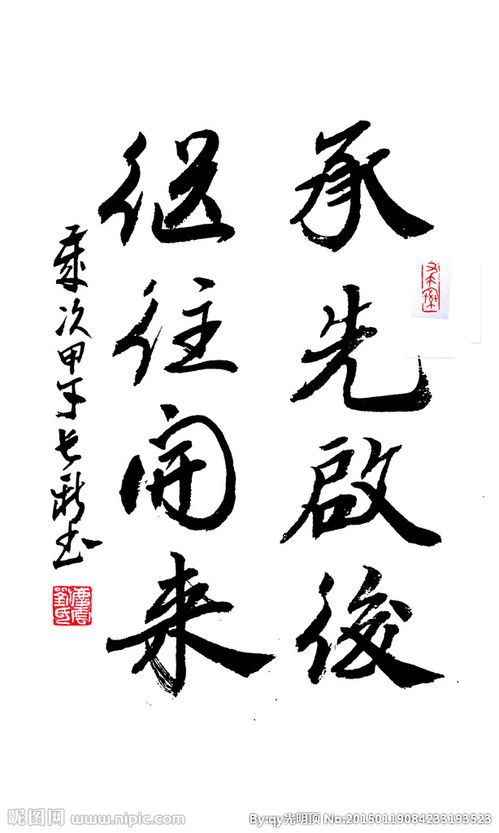 承先啟後
继往開来
歲次甲午长新书
昵图网 www.nipic.com
By:qy光明顶 No:20150119084233193523